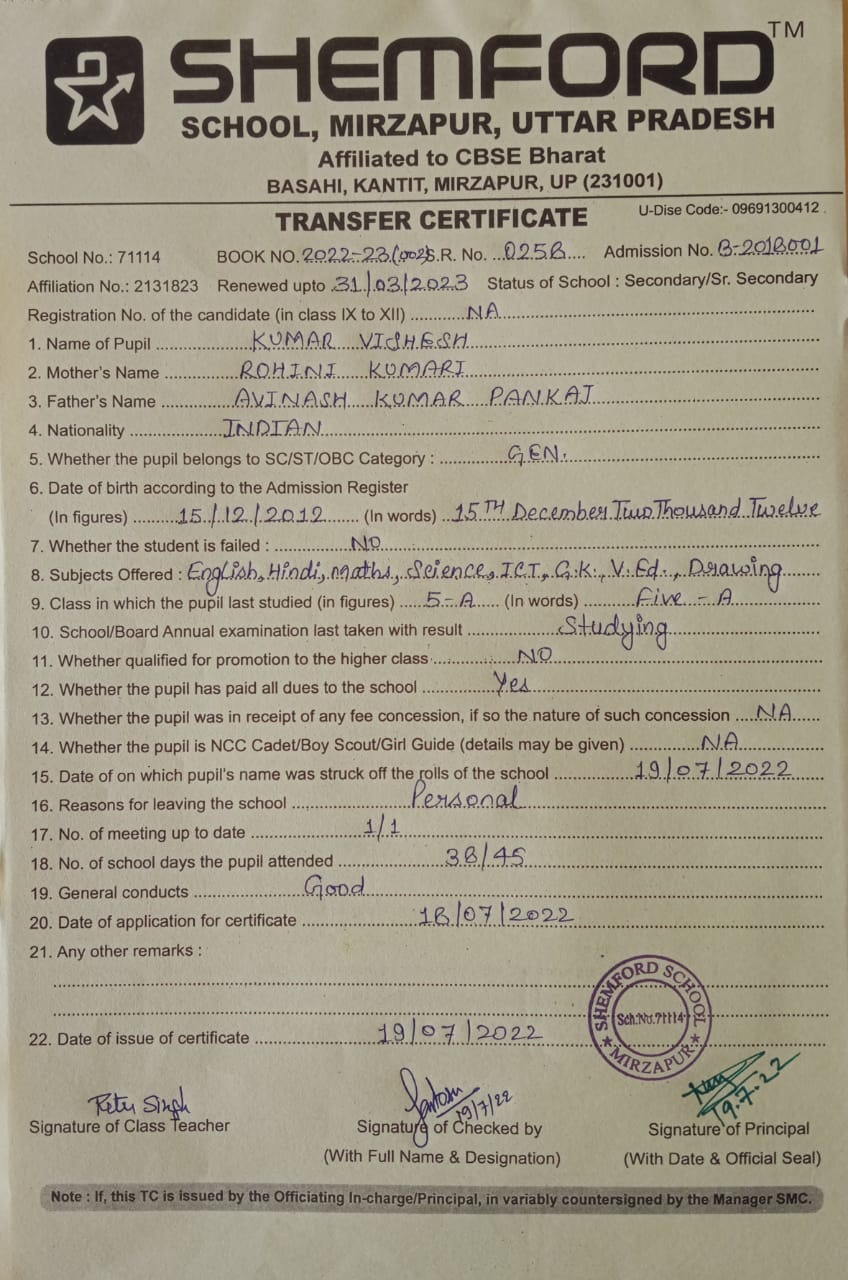 SHEMFORD™
SCHOOL, MIRZAPUR, UTTAR PRADESH
Affiliated to CBSE Bharat
BASAHI, KANTIT, MIRZAPUR, UP (231001)
TRANSFER CERTIFICATE U-Dise Code:- 09691300412
School No.: 71114 BOOK NO. 2022-23/(002) S.R. No. ..0258.... Admission No. B-2018001
Affiliation No.: 2131823 Renewed upto .31/03/2023 Status of School : Secondary/Sr. Secondary
Registration No. of the candidate (in class IX to XII) ............NA
1. Name of Pupil .................KUMAR VISHESH
2. Mother's Name .............ROHINI KUMARI
3. Father's Name .............AVINASH KUMAR PANKAJ
4. Nationality .................INDIAN
5. Whether the pupil belongs to SC/ST/OBC Category : ............GEN.
6. Date of birth according to the Admission Register
(In figures) .........15/12/2012....... (In words) ..15TH December Two Thousand Twelve
7. Whether the student is failed : ..............NO
8. Subjects Offered : English, Hindi, Maths, Science, ICT, G.K., V.Ed., Drawing
9. Class in which the pupil last studied (in figures) .....5-A..... (In words) .........Five - A
10. School/Board Annual examination last taken with result .................Studying
11. Whether qualified for promotion to the higher class ...............NO
12. Whether the pupil has paid all dues to the school .............Yes
13. Whether the pupil was in receipt of any fee concession, if so the nature of such concession ....NA
14. Whether the pupil is NCC Cadet/Boy Scout/Girl Guide (details may be given) .............NA
15. Date of on which pupil's name was struck off the rolls of the school .............19/07/2022
16. Reasons for leaving the school .....................Personal
17. No. of meeting up to date ....................1/1
18. No. of school days the pupil attended ..................38/45
19. General conducts ...................Good
20. Date of application for certificate ....................18/07/2022
21. Any other remarks :
SHEMFORD SCHOOL
Sch.No.71114
MIRZAPUR
22. Date of issue of certificate ....................19/07/2022
Retu Singh 19/7/22 19.7.22
Signature of Class Teacher Signature of Checked by Signature of Principal
(With Full Name & Designation) (With Date & Official Seal)
Note : If, this TC is issued by the Officiating In-charge/Principal, in variably countersigned by the Manager SMC.